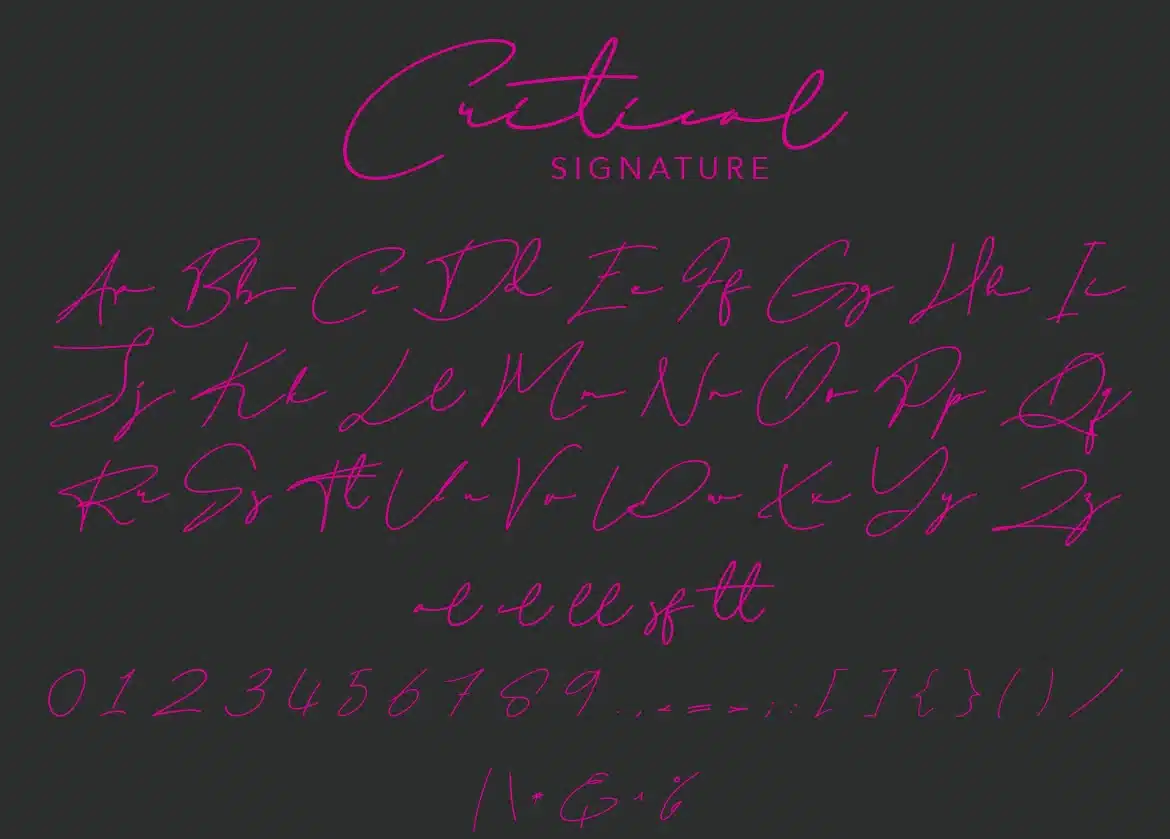 Critical
SIGNATURE
Aa Bb Cc Dd Ee Ff Gg Hh Ii
Jj Kk Ll Mm Nn Oo Pp Qq
Rr Ss Tt Uu Vv Ww Xx Yy Zz
al el ll sf tt
0 1 2 3 4 5 6 7 8 9 . , < = > ; : [ ] { } ( ) /
| \ * & ^ %